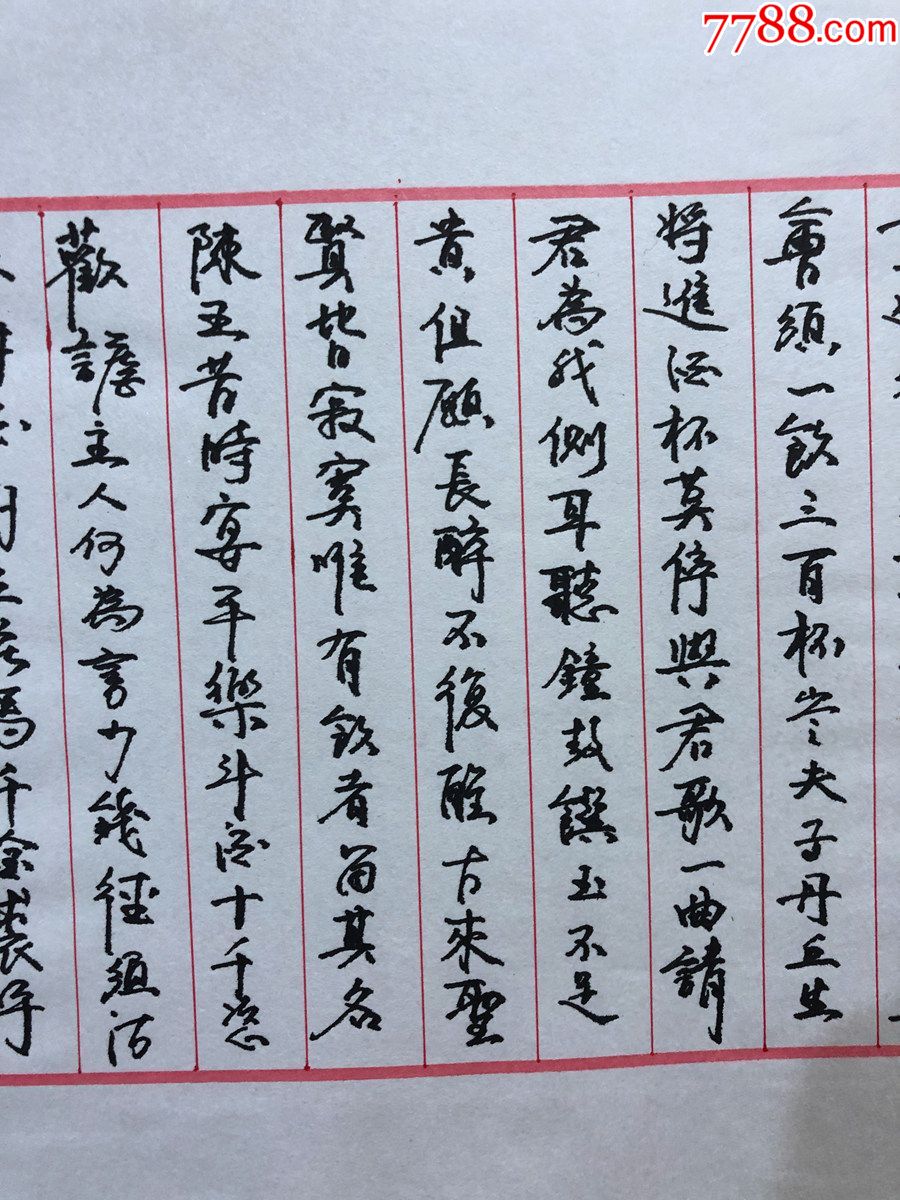 7788.com
會須一飲三百杯岑夫子丹丘生
將進酒杯莫停與君歌一曲請
君為我側耳聽鐘鼓饌玉不足
貴但願長醉不復醒古來聖
賢皆寂寞唯有飲者留其名
陳王昔時宴平樂斗酒十千恣
歡謔主人何為言少錢徑須沽
馬千金裘呼